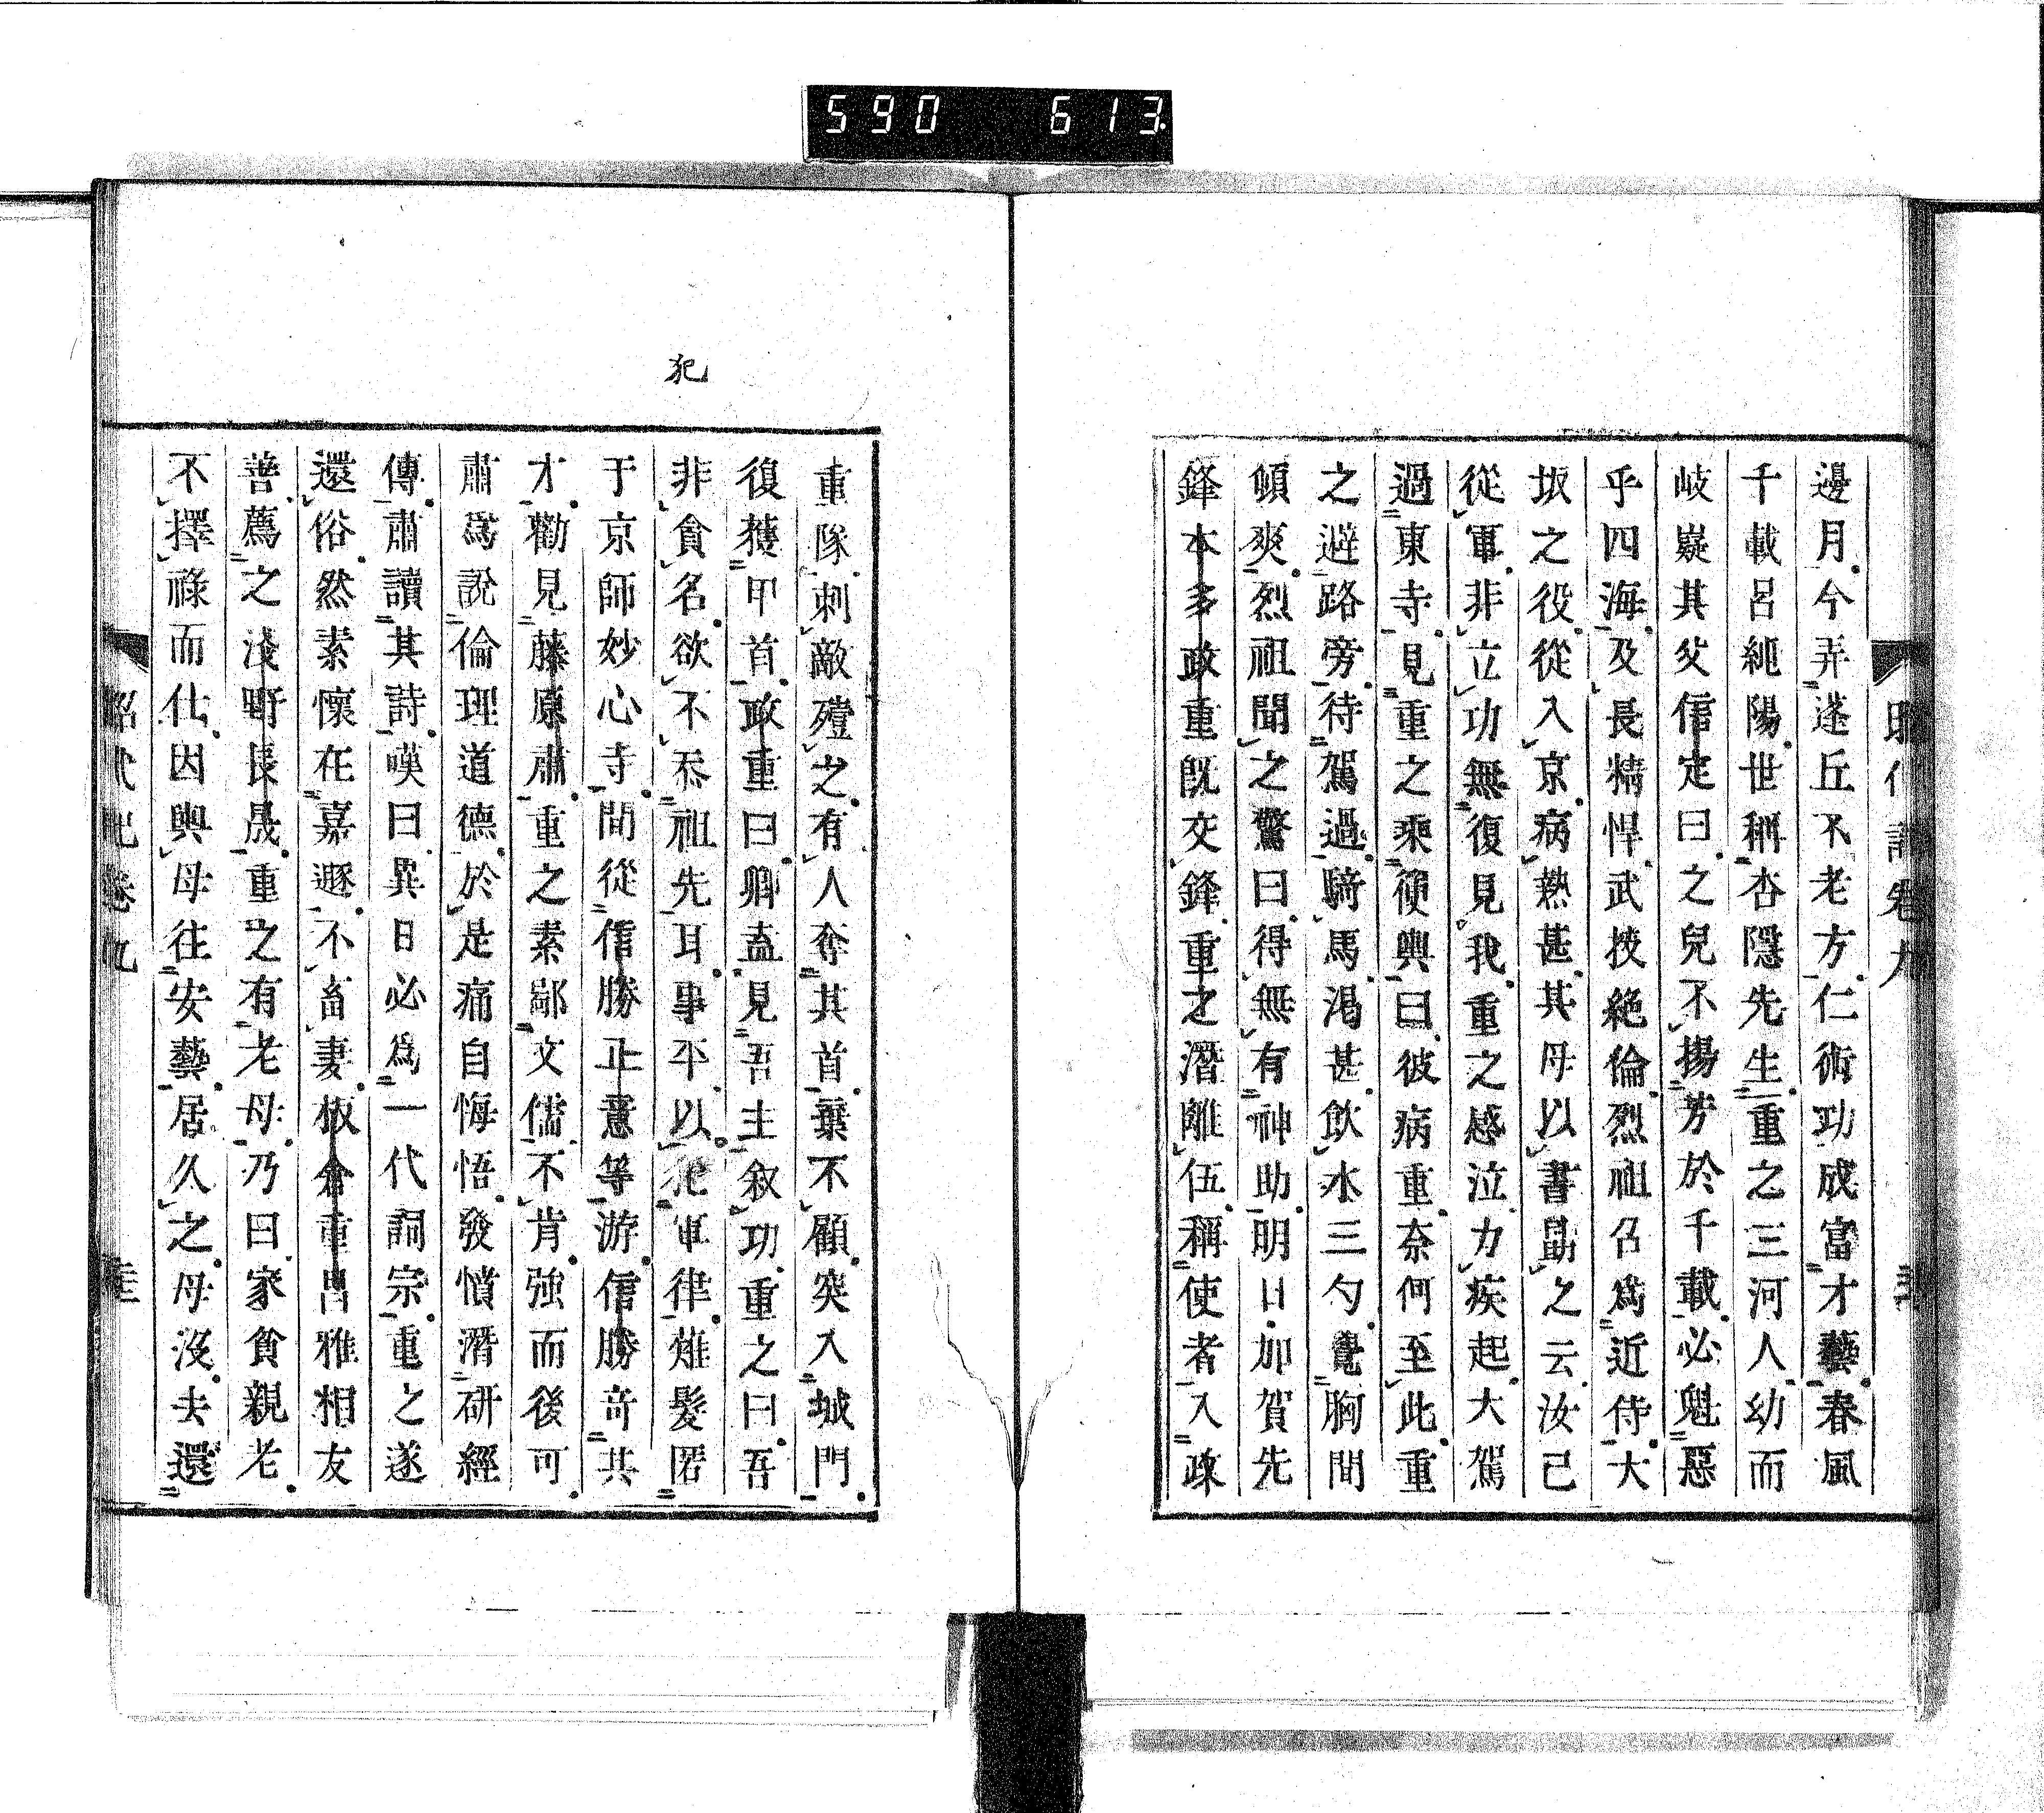 590 613
昭代記卷九
邊月今弄蓬丘不老方仁術功成富才藝春風
千載呂純陽世稱杏隱先生重之三河人幼而
岐嶷其父信定曰之兒不揚芳於千載必魁惡
乎四海及長精悍武技絶倫烈祖召爲近侍大
坂之役從入京病熱甚其母以書勗之云汝已
從軍非立功無復見我重之感泣力疾起大駕
過東寺見重之乘便輿曰彼病重奈何至此重
之避路旁待駕過騎馬渇甚飲水三勺覺胸間
頓爽烈祖聞之驚曰得無有神助明日加賀先
鋒本多政重既交鋒重之潛離伍稱使者入政
犯
重隊刺敵殪之有人奪其首棄不顧突入城門
復獲甲首政重曰卿盍見吾主叙功重之曰吾
非貪名欲不忝祖先耳事平以犯軍律薙髮匿
于京師妙心寺間從信勝正意等游信勝奇其
才勸見藤原肅重之素鄙文儒不肯強而後可
肅爲説倫理道德於是痛自悔悟發憤潛研經
傳肅讀其詩嘆曰異日必爲一代詞宗重之遂
還俗然素懷在嘉遯不畜妻板倉重昌雅相友
善薦之淺野長晟重之有老母乃曰家貧親老
不擇祿而仕因輿母往安藝居久之母沒去還
昭代記卷九